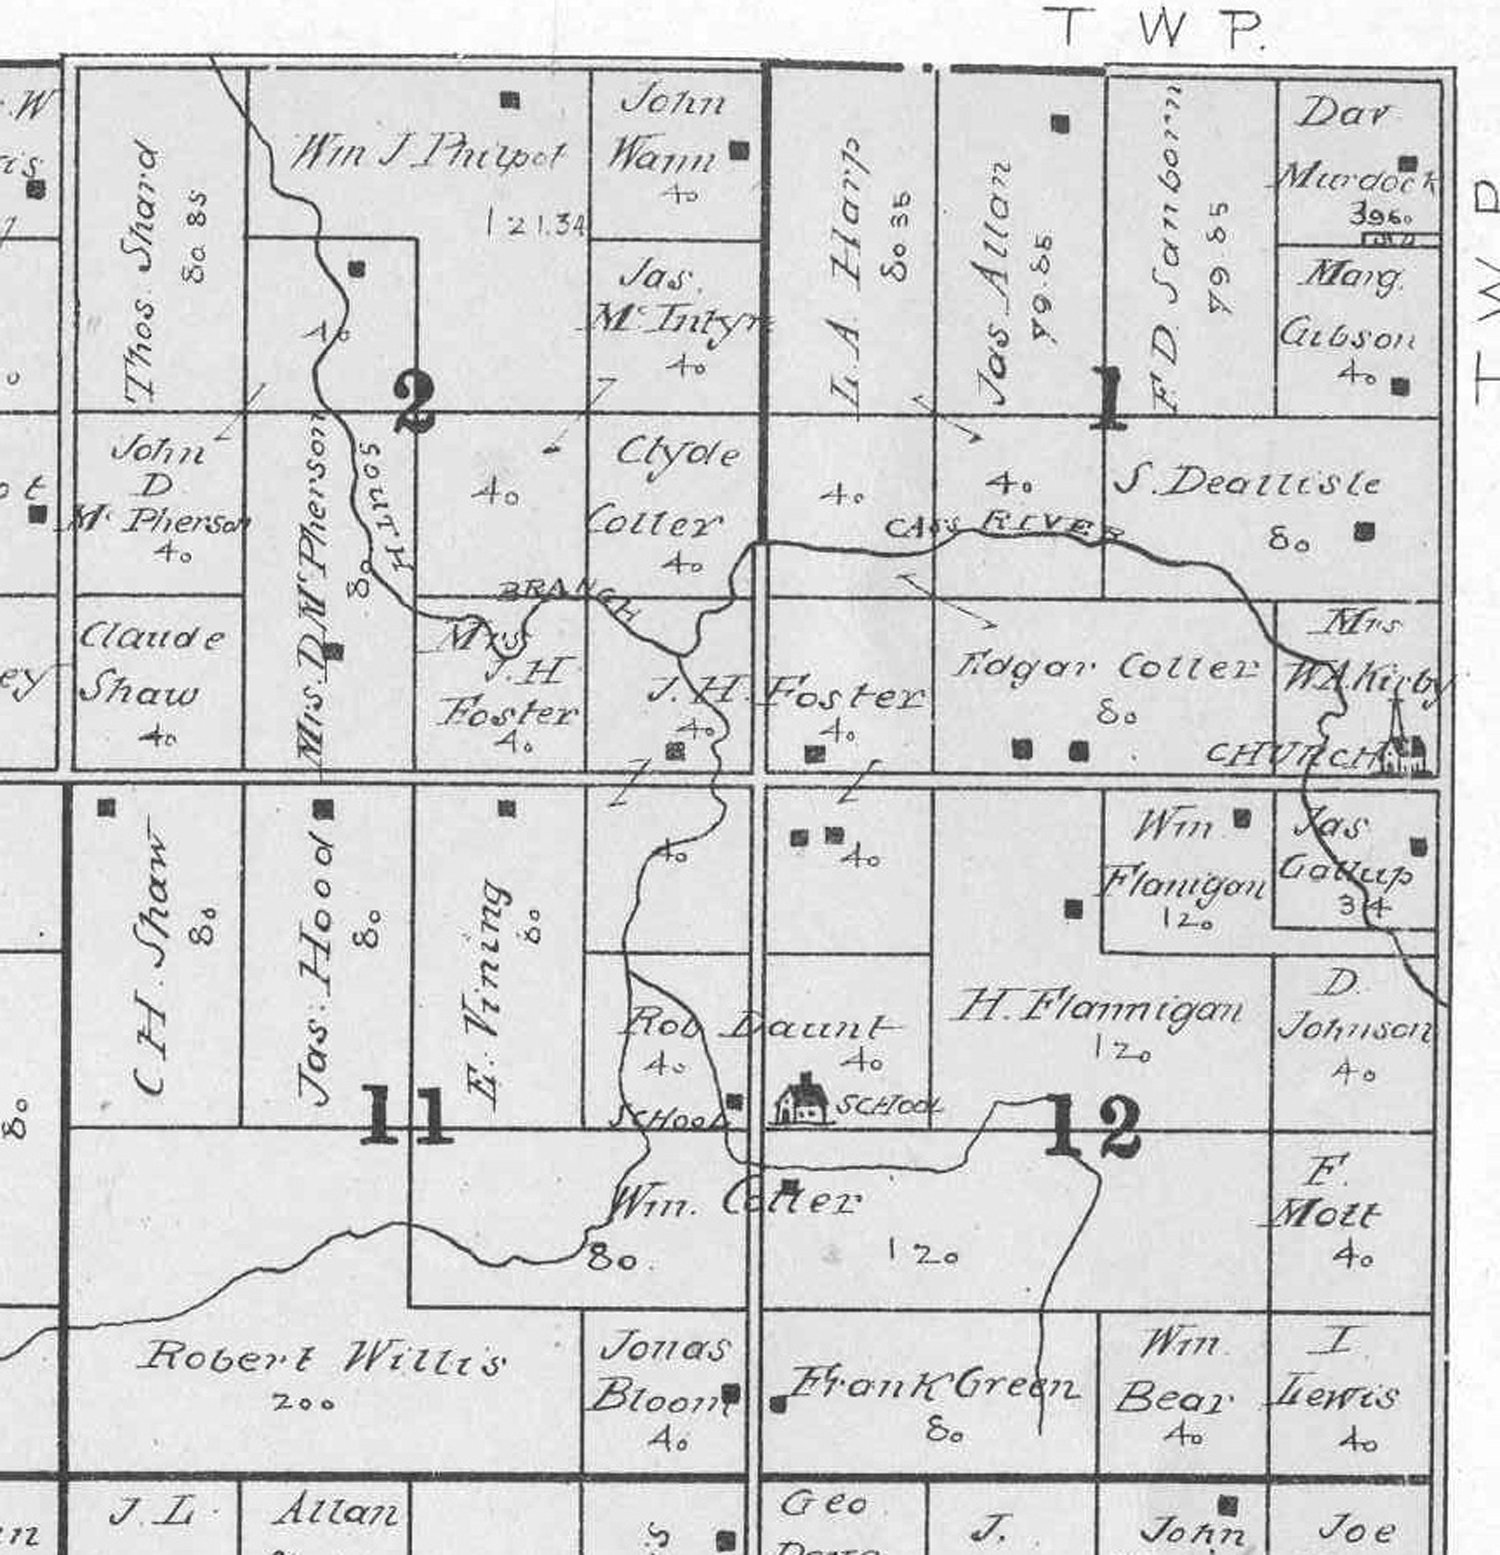 TWP.
TWP
Thos. Shard
80 85
Wm J Philpot
121.34
John
Wann
40
L. A. Harp
80 35
Jas Allan
79.85
F. D. Sanborn
79 85
Dav
Murdock
3960
Jas.
McIntyre
40
Marg.
Gibson
40
40
2
1
John
D
McPherson
40
Mrs. D. McPherson
80
SOUTH
BRANCH
40
Clyde
Cotter
40
40
40
CASS RIVER
S. Deallisle
80
Claude
Shaw
40
Mrs
J. H
Foster
40
J. H. Foster
40
40
Edgar Cotter
80
Mrs
W.A. Kirby
CHURCH
C H. Shaw
80
Jas. Hood
80
E. Vining
80
40
40
Wm
Flanigan
120
Jas
Gallup
34
Rob Daunt
40
40
SCHOOL
SCHOOL
H. Flannigan
120
D.
Johnson
40
11
12
Wm. Cotter
80
120
F.
Mott
40
80
Robert Willis
200
Jonas
Bloom
40
Frank Green
80
Wm
Bear
40
I
Lewis
40
J. L.
Allan
Geo
J.
John
Joe